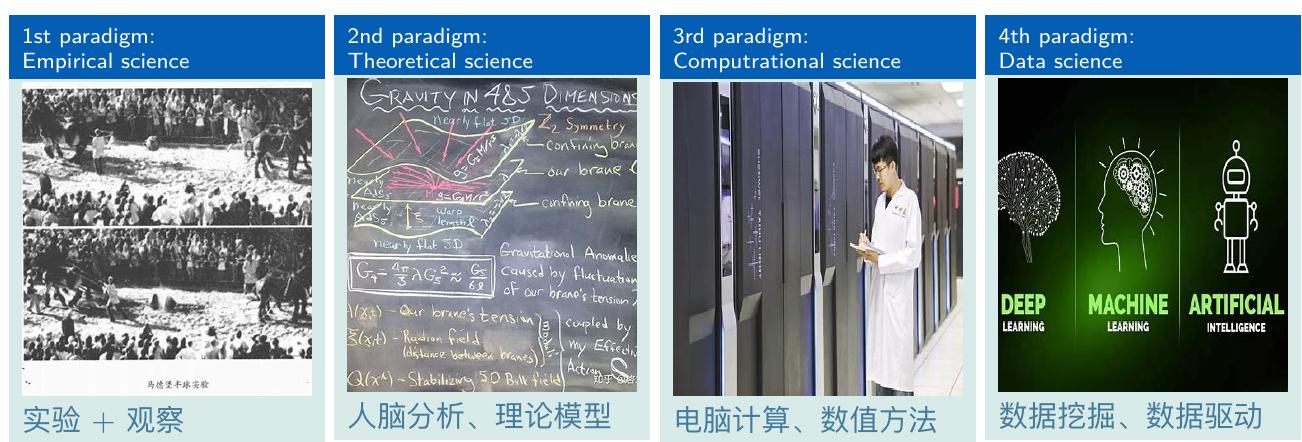 1st paradigm:
Empirical science
马德堡半球实验
实验 + 观察
2nd paradigm:
Theoretical science
GRAVITY IN 4&5 DIMENSIONS
nearly flat 5D
Z₂ Symmetry
confining brane
our brane
nearly
AdS₅
nearly
AdS₅
warp
length ℓ
confining brane
nearly flat 5D
G₄ = 4π/3 λG₅² ≈ G₅/6ℓ
Gravitational Anomalie
caused by fluctuation
of our brane's tension
λ(x,t) - Our brane's tension
ξ(x,t) - Radion field
(distance between branes)
Q(x^) - Stabilizing 5D Bulk field
coupled by
my Effectiv
Action S
知乎
人脑分析、理论模型
3rd paradigm:
Computrational science
电脑计算、数值方法
4th paradigm:
Data science
DEEP
LEARNING
MACHINE
LEARNING
ARTIFICIAL
INTELLIGENCE
数据挖掘、数据驱动